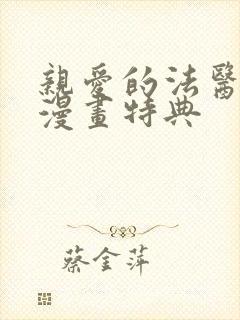 親愛的法醫
漫畫特典
蔡金萍